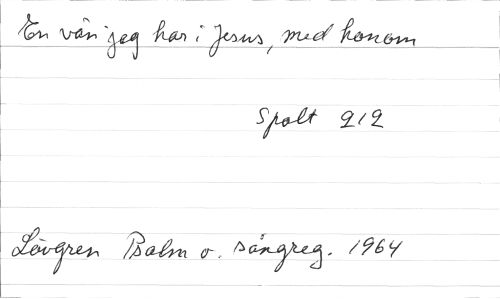 En vän jag har i Jesus, med honom
Spalt 212
Lövgren Psalm o. sångreg. 1964